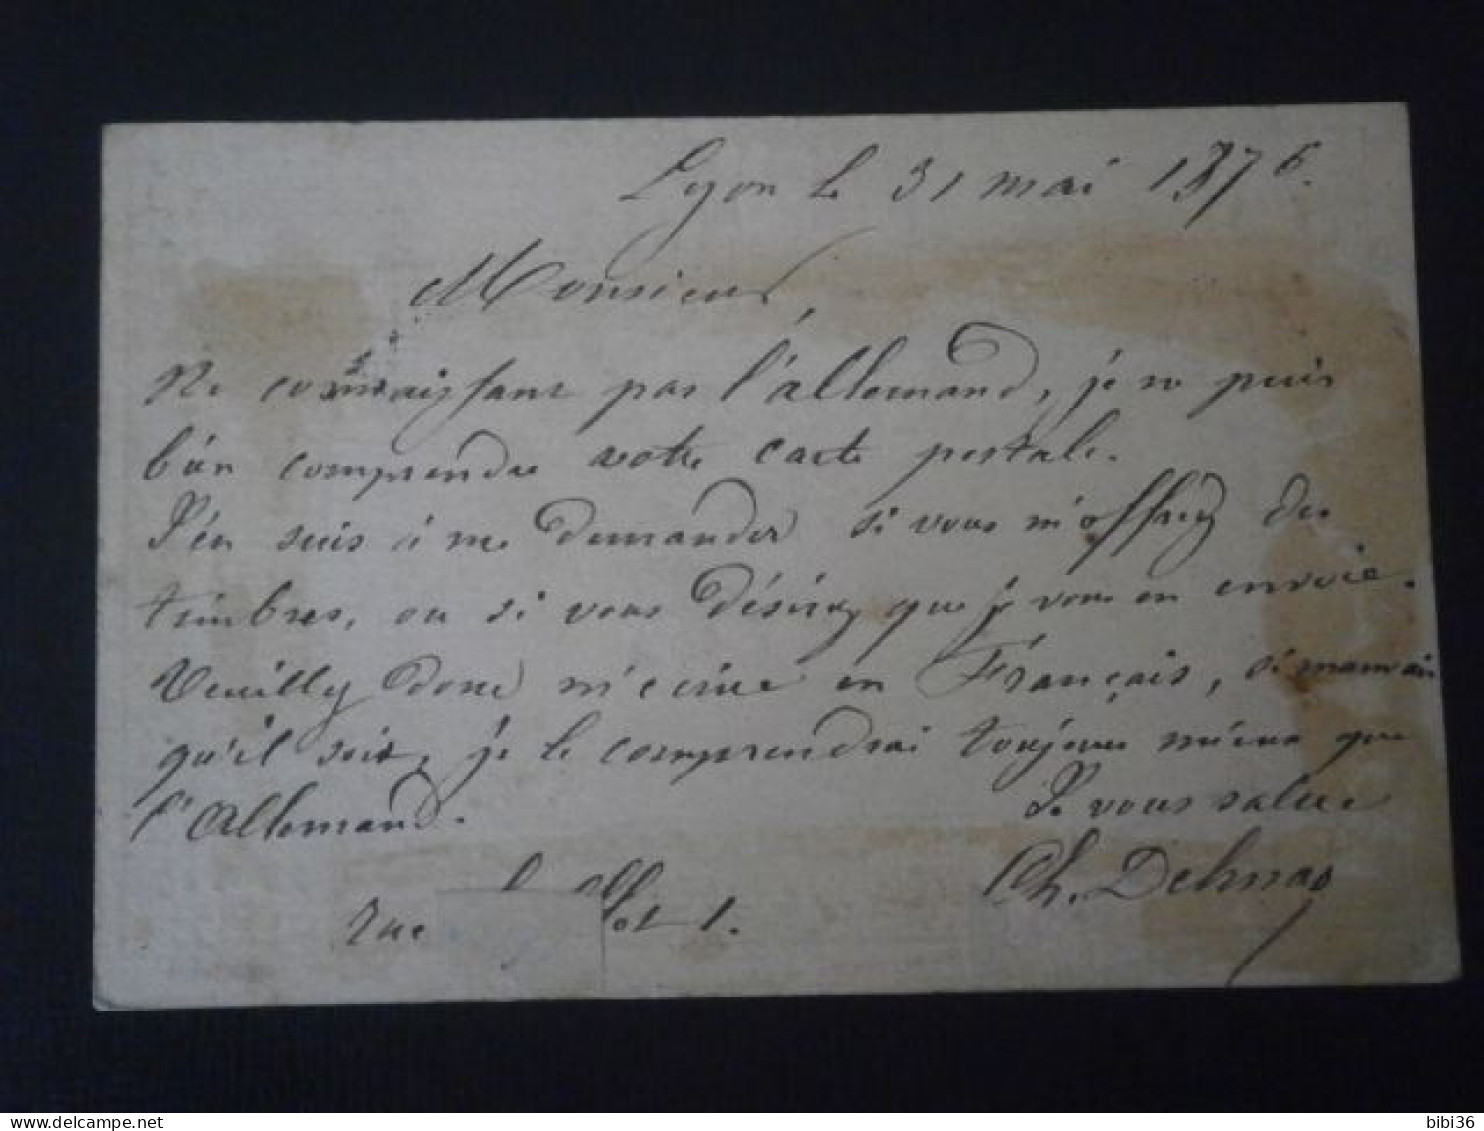 Lyon le 31 mai 1876.
Monsieur,
Ne connaissant pas l'allemand, je ne puis
bien comprendre votre carte postale.
J'en suis à me demander si vous m'offrez des
timbres, ou si vous désirez que je vous en envoie.
Veuillez donc m'écrire en Français, si mauvais
qu'il soit, je le comprendrai toujours mieux que
l'Allemand.
Je vous salue
Ch. Delmas
rue 1.
bibi36